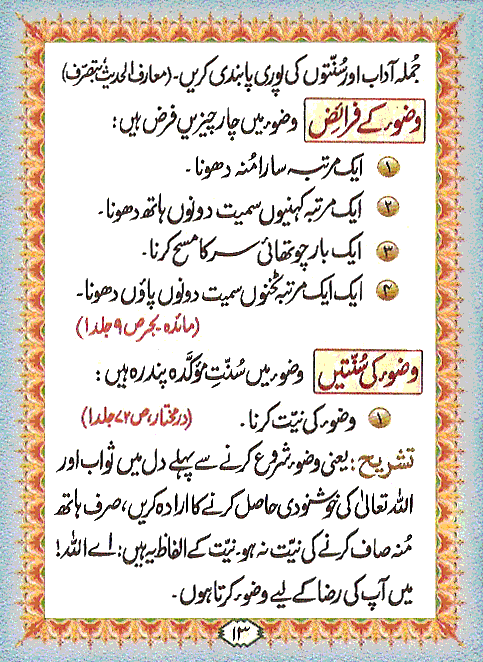 جُملہ آداب اور سُنّتوں کی پوری پابندی کریں۔ (معارف الحدیث بتصرّف)
وضوء کے فرائض وضوء میں چار چیزیں فرض ہیں:
۱ ایک مرتبہ سارا مُنہ دھونا۔
۲ ایک مرتبہ کہنیوں سمیت دونوں ہاتھ دھونا۔
۳ ایک بار چوتھائی سر کا مسح کرنا۔
۴ ایک ایک مرتبہ ٹخنوں سمیت دونوں پاؤں دھونا۔
(مائدہ۔بحر ص ۹ جلد ۱)
وضوء کی سُنّتیں وضوء میں سُنّتِ مؤکَّدہ پندرہ ہیں:
۱ وضوء کی نیّت کرنا۔ (درمختار، ص ۷۲ جلد ۱)
تشریح: یعنی وضوء شروع کرنے سے پہلے دل میں ثواب اور
اللہ تعالیٰ کی خوشنودی حاصل کرنے کا ارادہ کریں، صرف ہاتھ
مُنہ صاف کرنے کی نیّت نہ ہو۔ نیّت کے الفاظ یہ ہیں: اے اللہ!
میں آپ کی رضا کے لیے وضوء کرتا ہوں۔
۱۳